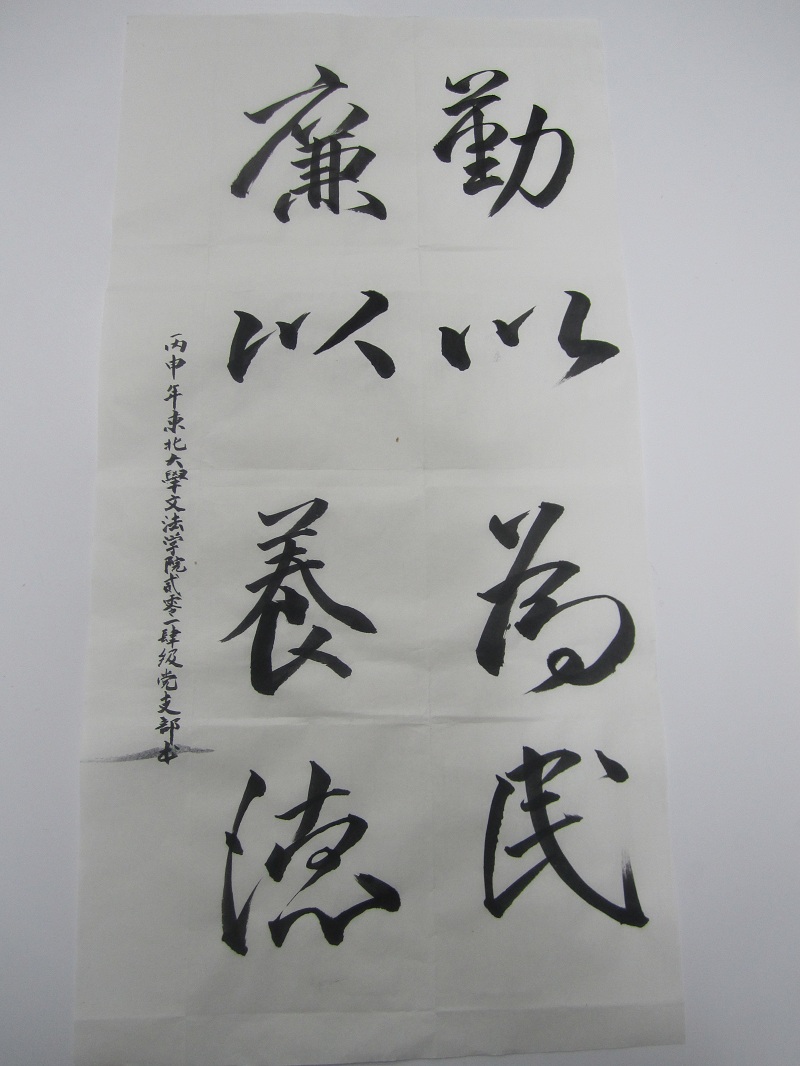 勤以為民
廉以養德
丙申年東北大學文法学院貳零一肆级党支部书